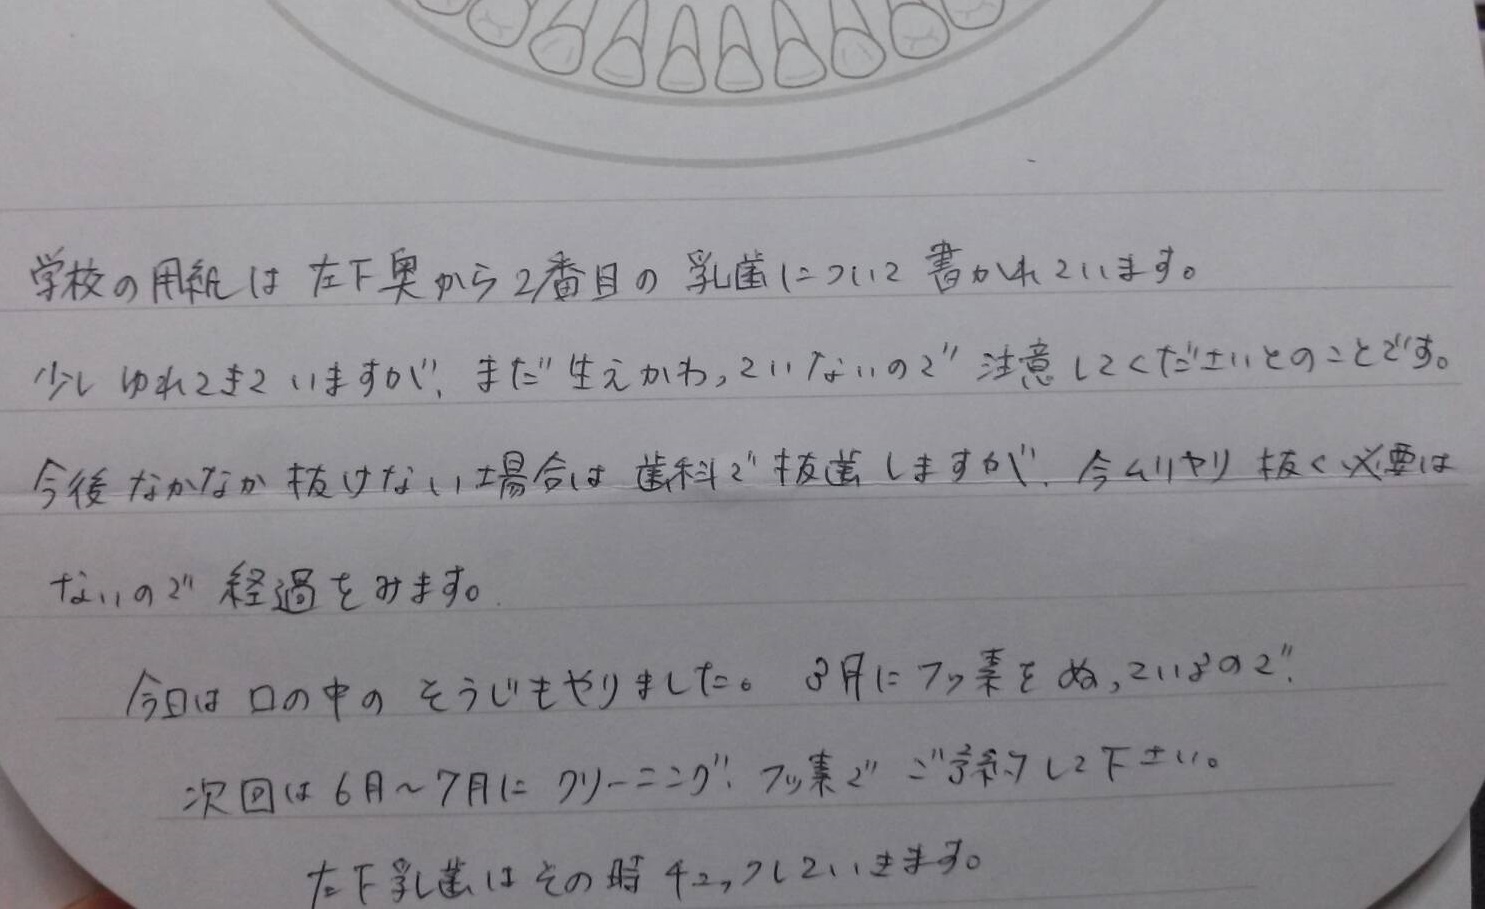 学校の用紙は左下奥から2番目の乳歯について書かれています。
少しゆれてきていますが、まだ生えかわっていないので注意してくださいとのことです。
今後なかなか抜けない場合は歯科で抜歯しますが、今ムリヤリ抜く必要は
ないので経過をみます。
今日は口の中のそうじもやりました。3月にフッ素をぬっているので、
次回は6月〜7月にクリーニング、フッ素でご予約して下さい。
左下乳歯はその時チェックしていきます。